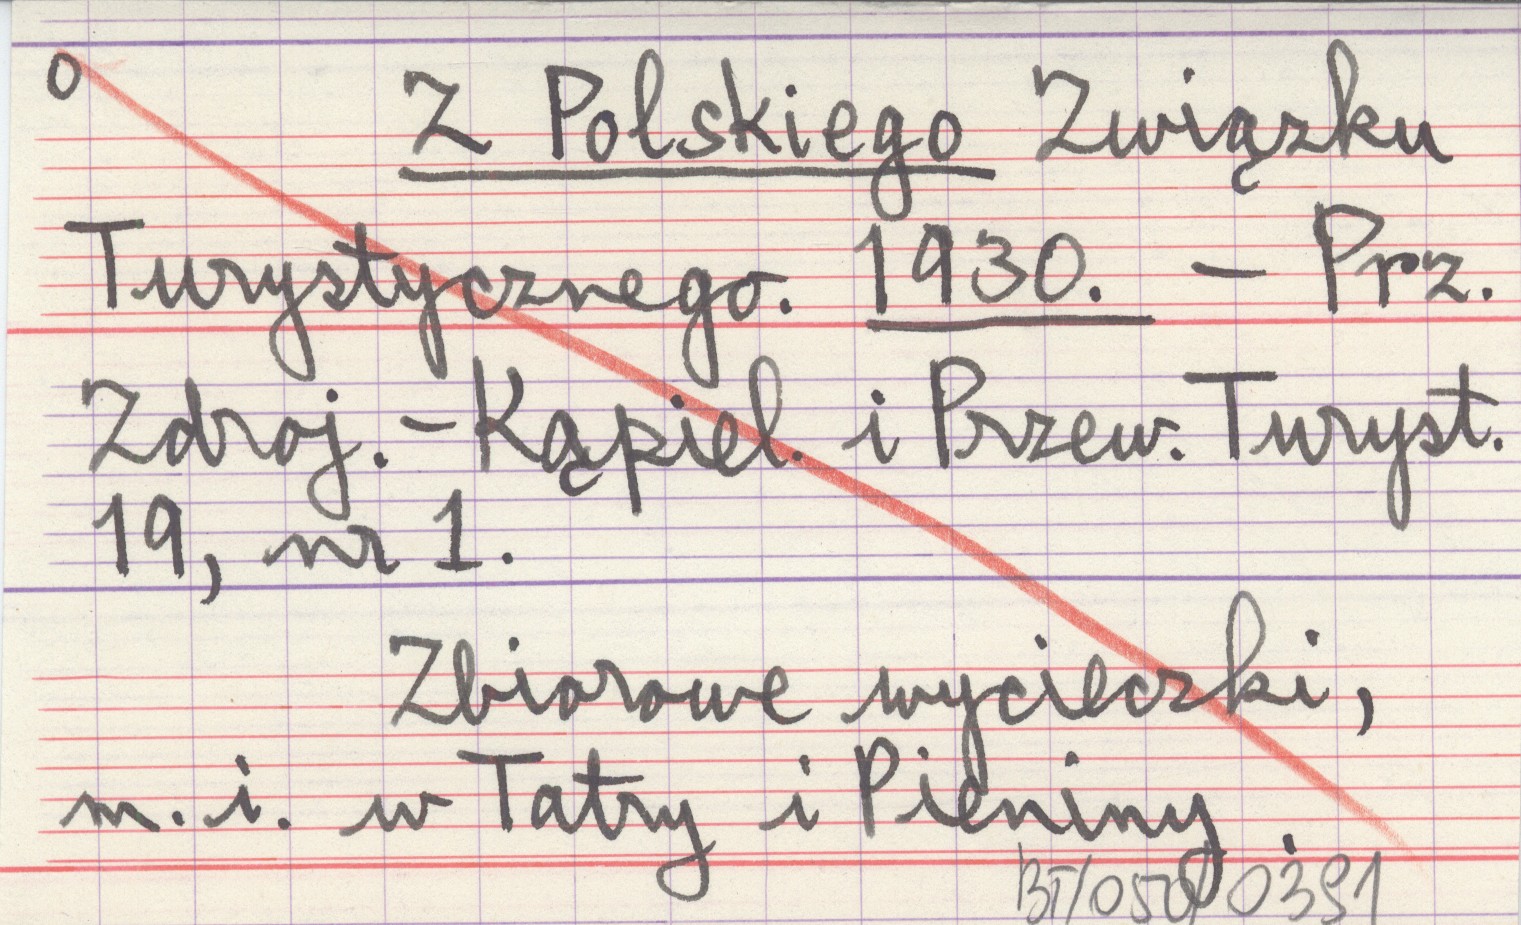 0 Z Polskiego Związku
Turystycznego. 1930. – Prz.
Zdroj.-Kąpiel. i Przew. Turyst.
19, nr 1.
Zbiorowe wycieczki,
m.i. w Tatry i Pieniny.
BT/050/0391